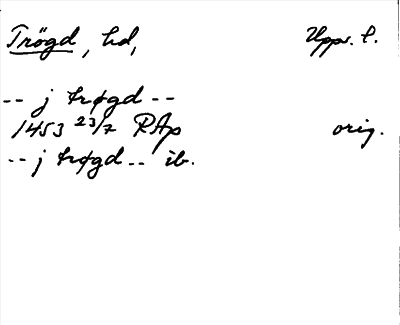 Trögd, hd, Upps. l.
-- j trøgd --
1453 23/7 RAp orig.
-- j trøgd -- ib.